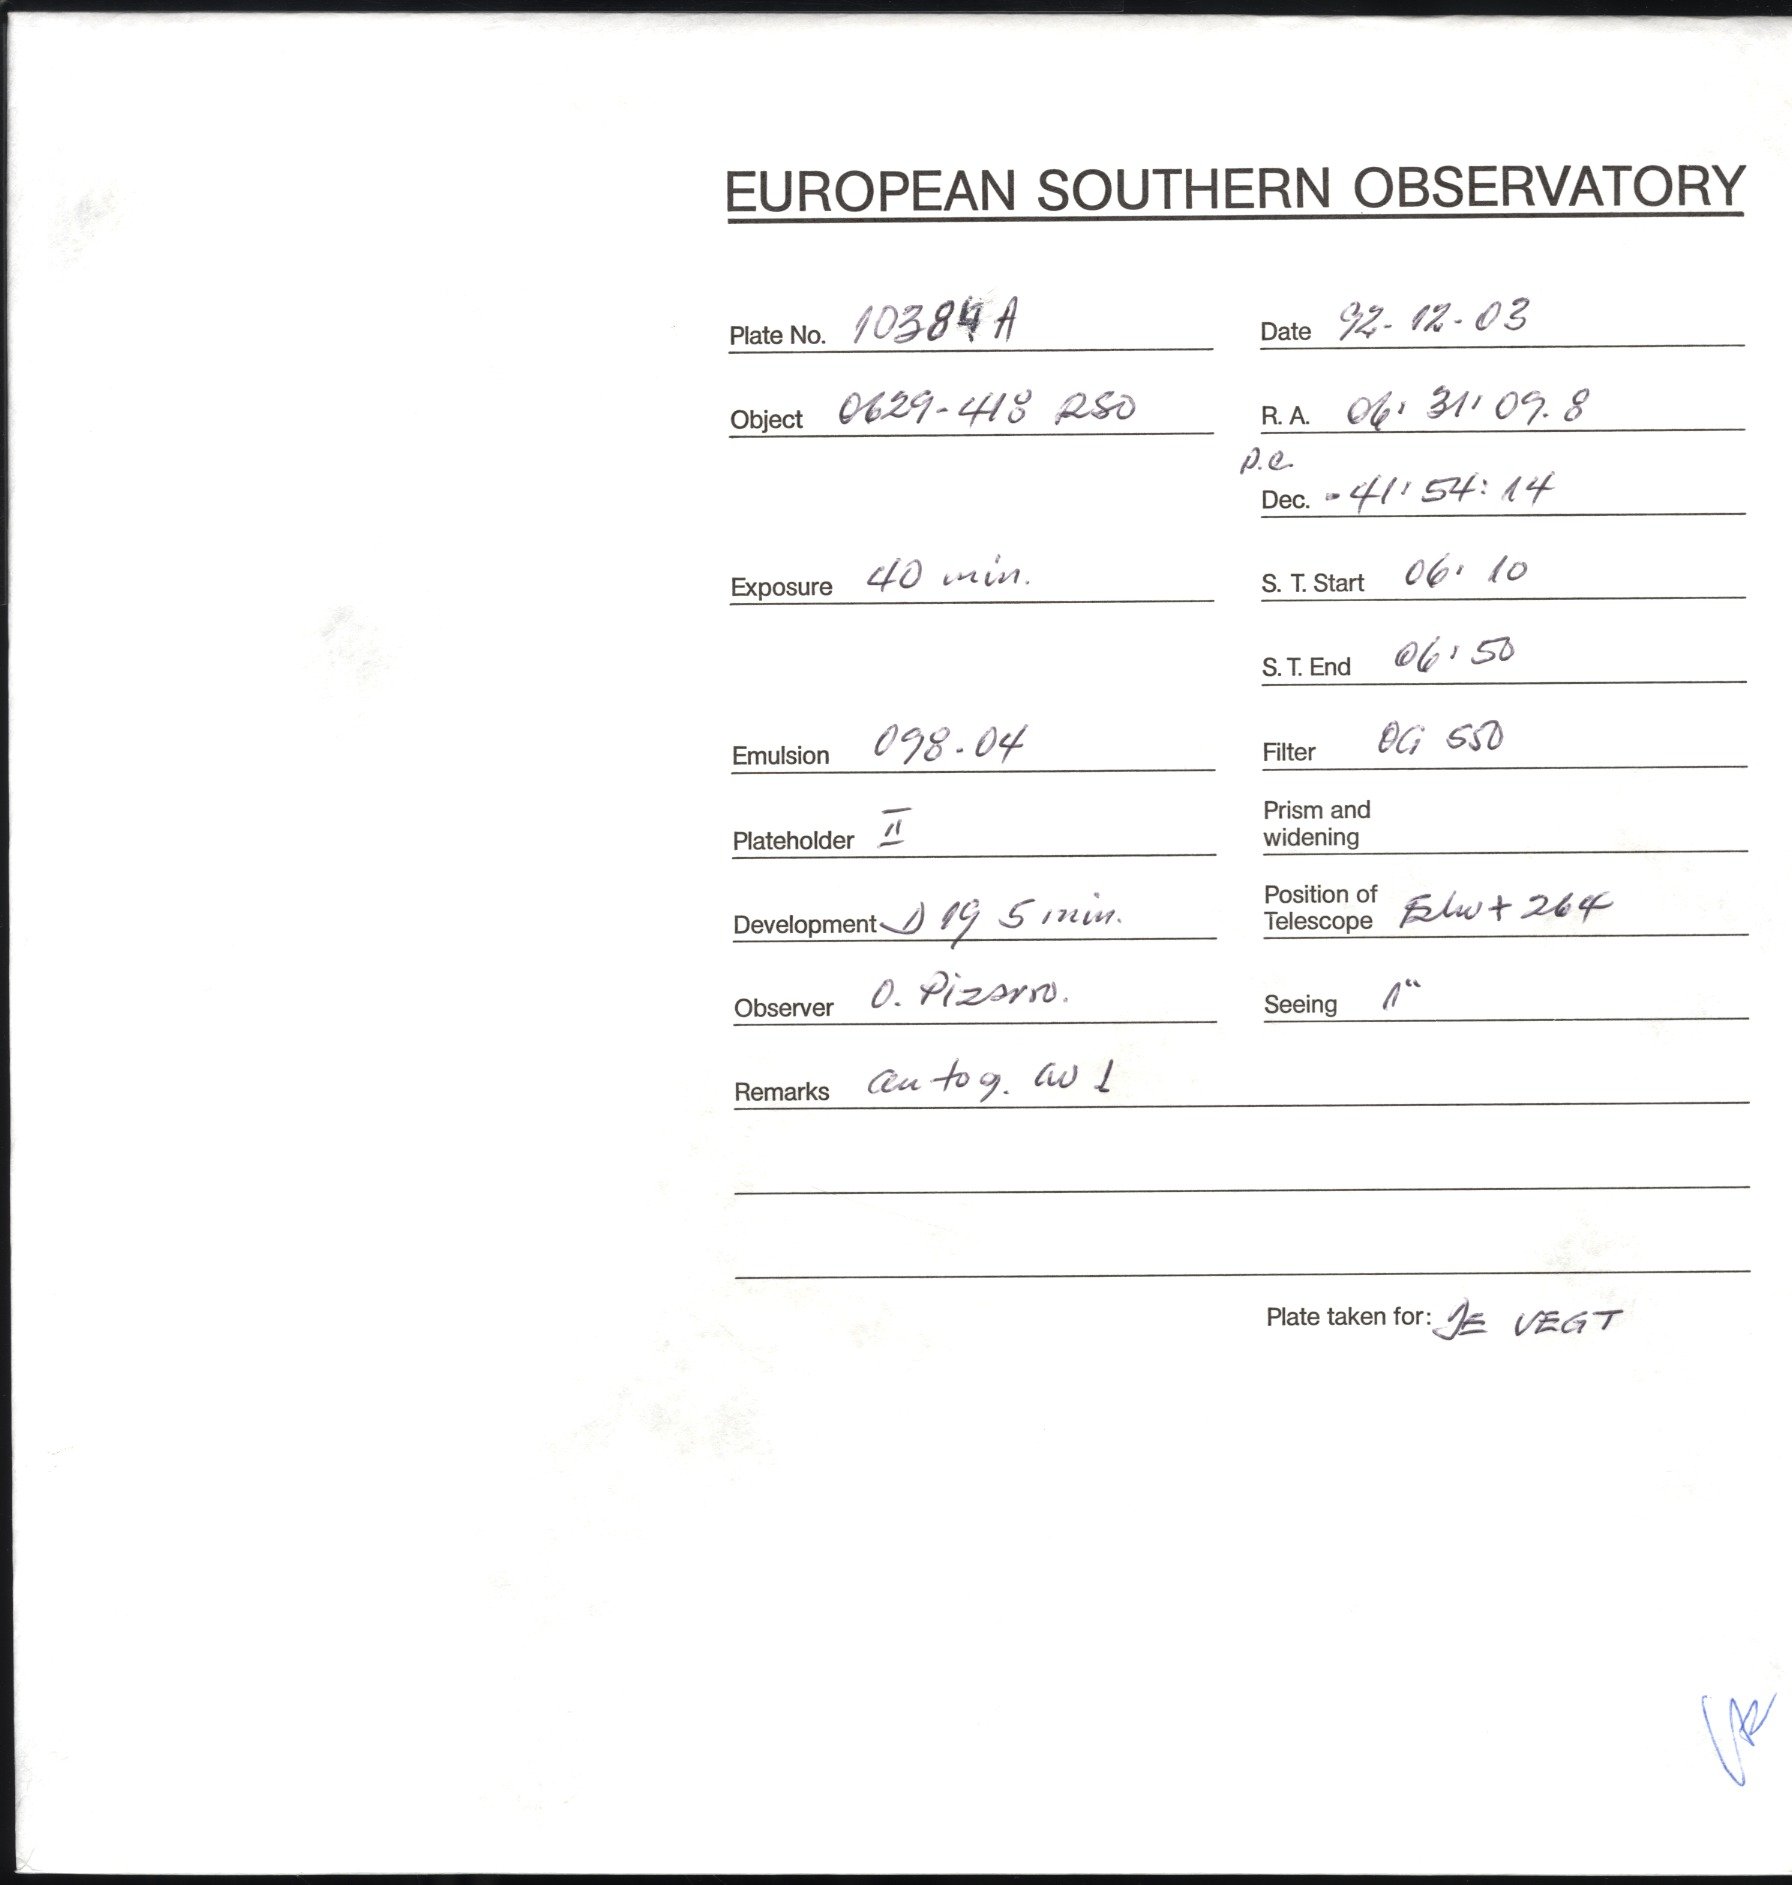 EUROPEAN SOUTHERN OBSERVATORY
Plate No. 10384 A
Date 92-12-03
Object 0629-418 RSO
R. A. 06: 31: 09.8
p.e.
Dec. -41: 54: 14
Exposure 40 min.
S. T. Start 06: 10
S. T. End 06: 50
Emulsion 098-04
Filter OG 550
Plateholder II
Prism and
widening
Development D 19 5 min.
Position of
Telescope + 264
Observer O. Pizarro.
Seeing 1"
Remarks autog. 1
Plate taken for: DE VEGT